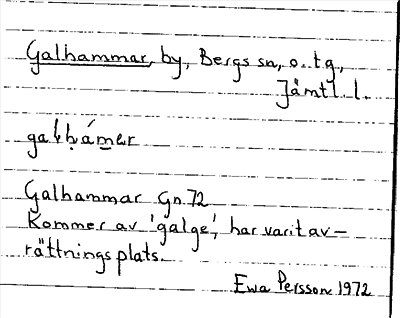 Galhammar, by, Bergs sn, o. t. g.,
Jämtl. l.
gaḷḥámer
Galhammar Gn. 72
Kommer av 'galge', har varit av-
rättningsplats.
Ewa Persson 1972